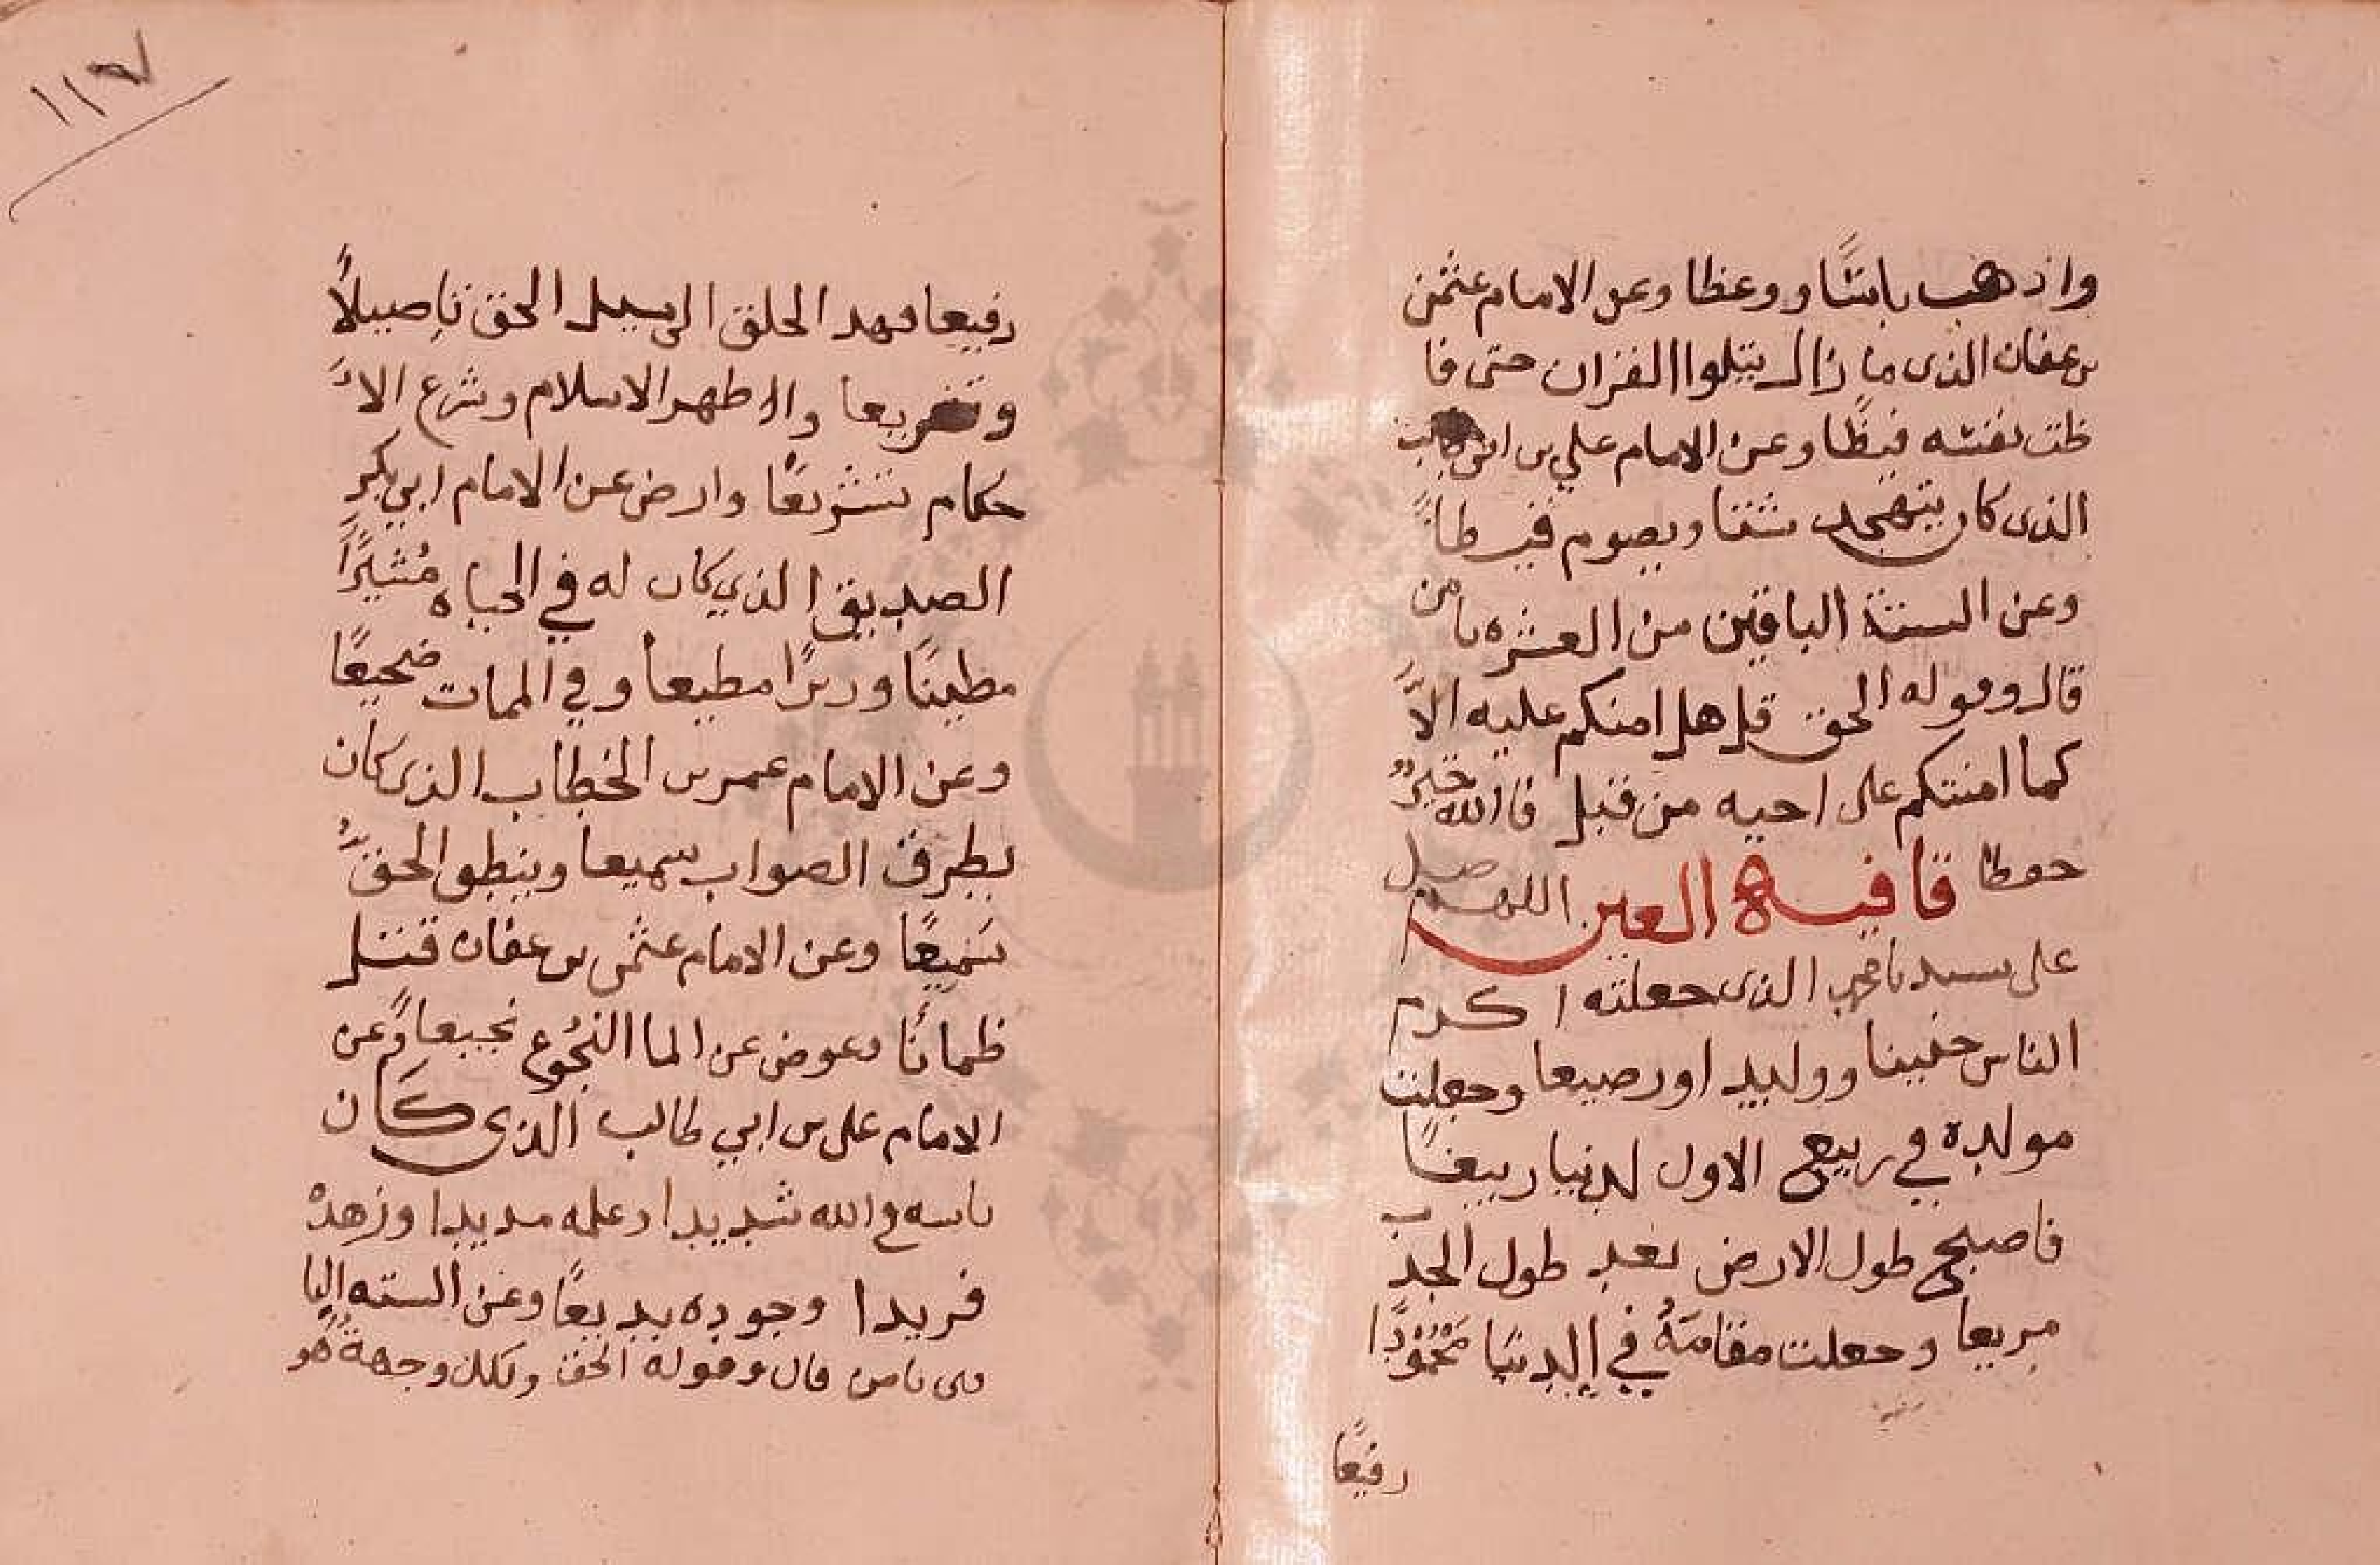 واذهب باسًا ووعظا وعن الامام عثمن
بن عفان الذى ما زال يتلوا القران حتى فا
ظت نفسه فيظًا وعن الامام علي بن ابى طالب
الذى كان يتهجد شتا ويصوم قيظاً
وعن الستة الباقين من العشره يا من
قال وقوله الحق قل هل امنكم عليه الاَّ
كما امنتكم على اخيه من قبل فالله خيرٌ
حفظا قافيه العين اللهم صل
على سيدنا محمد الذى جعلته اكرم
الناس جنينا ووليدا ورضيعا وجعلت
مولده في ربيع الاول لدنيا ربيعًا
فاصبح طول الارض بعد طول الجدب
مريعا وجعلت مقامَهُ في الدنيا محمودًا
رفيعًا
١١٧
رفيعا فهد الخلق الى سبيل الحق تاصيلاً
وتفريعا واذ اظهر الاسلام وشرع الاَ
حكام تشريعًا وارض عن الامام ابي بكرٍ
الصديق الذي كان له في الحياه مُشيرًا
مطيبًا وزيرًا مطيعاً وفي الممات ضجيعًا
وعن الامام عمر بن الخطاب الذى كان
بطرق الصواب سميعا وينطق الحق
سَميعًا وعن الامام عثمن بن عفان قتيل
ظمانًا وعوض عن الما النجُوع نجيعا وعن
الامام على بن ابي طالب الذى كَان
باسه والله شديدا وعلمه مديدا وزهده
فريدا وجوده بديعًا وعن السته البا
قين يا من قال وقوله الحق ولكل وجهةٌ هُو